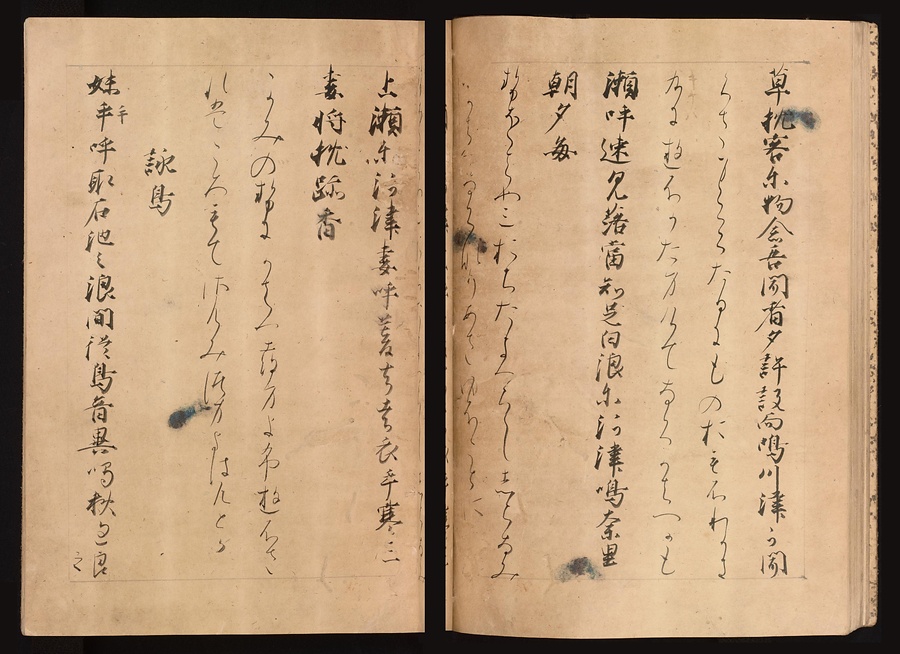 草枕客尓物念吾聞者夕許設而鳴川津可聞
たひにものおもふわれき
ゆふかたまけてなくかはつかも
瀬呼速見落當知足白浪尓河津鳴奈里
朝夕毎
せをはやみおちたきちたるしらなみ
かはつなくなりあさゆふことに
上瀬尓河津妻呼暮去者衣手寒三
妻将枕跡香
かみのせにかはつつまよふゆふされ
はころもてさむみつままかんとか
詠鳥
妹手乎呼取石池之浪間従鳥音異鳴秋過良之